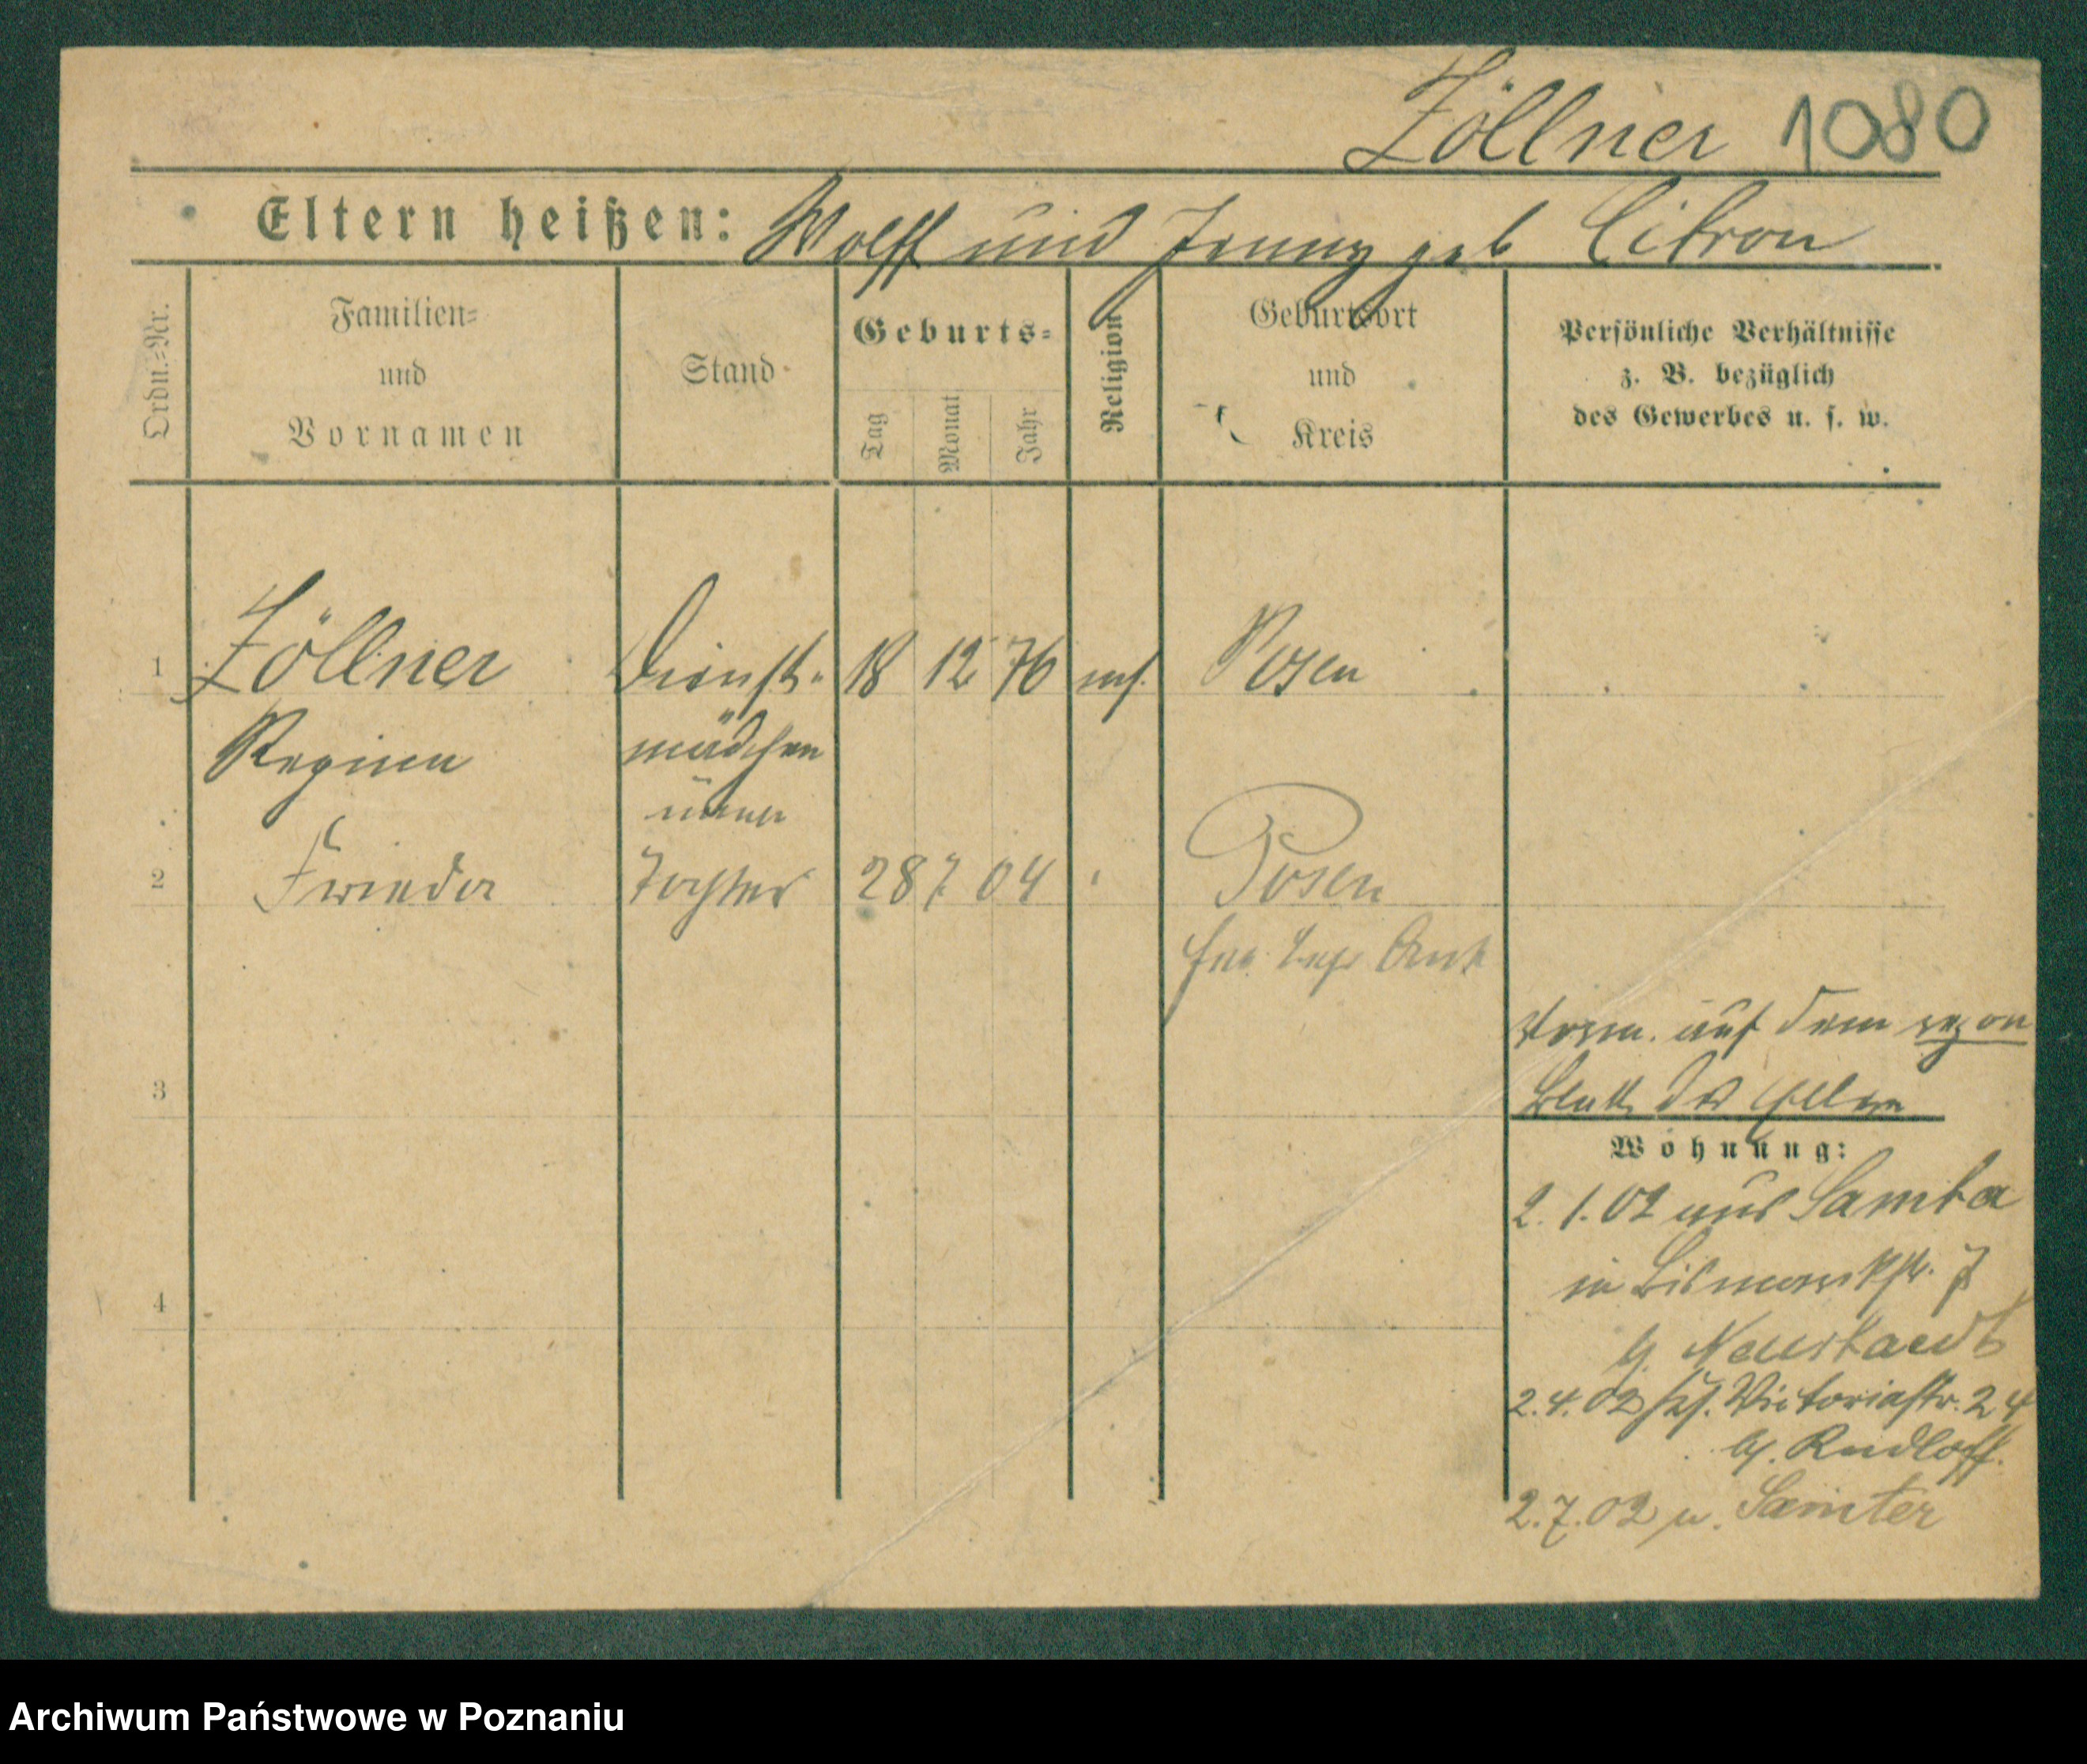 Zöllner 1080
Eltern heißen: Wolff und Jenny geb Citron
Ordn.=Nr.
Familien=
und
Vornamen
Stand
Geburts=
Tag
Monat
Jahr
Religion
Geburtsort
und
Kreis
Persönliche Verhältnisse
z. B. bezüglich
des Gewerbes u. s. w.
1 Zöllner Dienst- 18 12 76 mos. Posen
Regina mädchen
2 Frieda Tochter 28 7 04 Posen
auf dem
3 Blatt der Eltern
Wohnung:
2. 1. 02 aus Samter
4 in Bismarckstr. 7
b/. Neustaedt
2. 4. 02 Victoriastr. 24
b/. Rudloff.
2. 7. 02 n. Samter
Archiwum Państwowe w Poznaniu